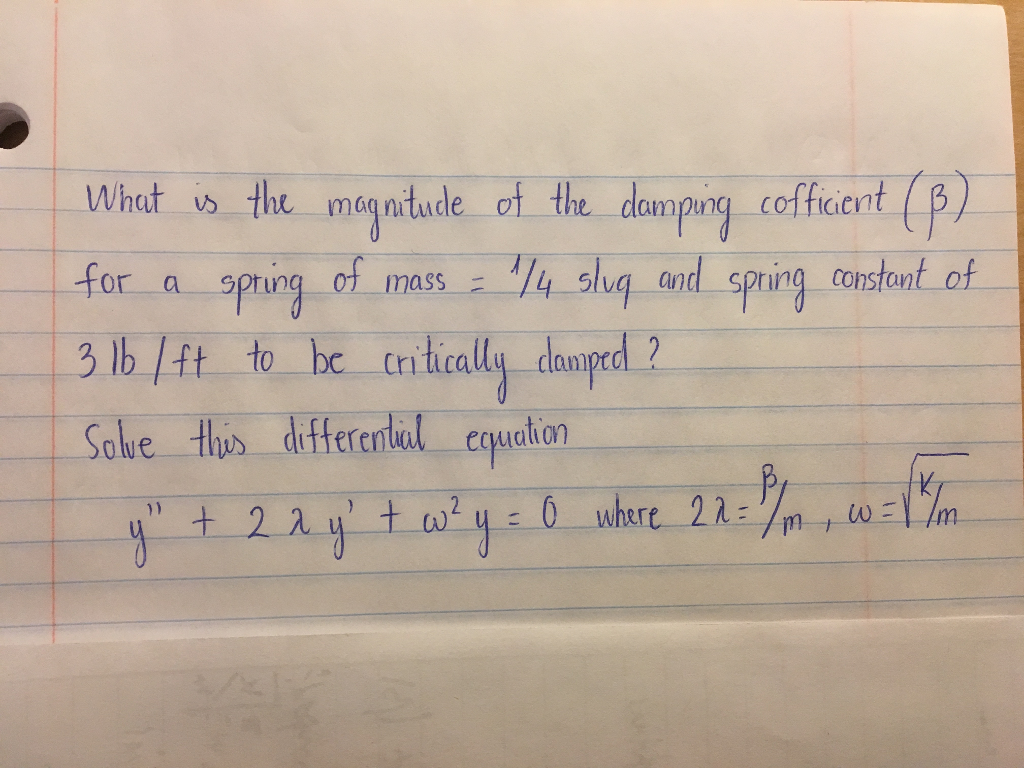 What is the magnitude of the damping cofficient (β)
for a spring of mass = 1/4 slug and spring constant of
3 lb / ft to be critically damped ?
Solve this differential equation
y'' + 2 λ y' + ω² y = 0 where 2λ = β/m , ω = √(K/m)